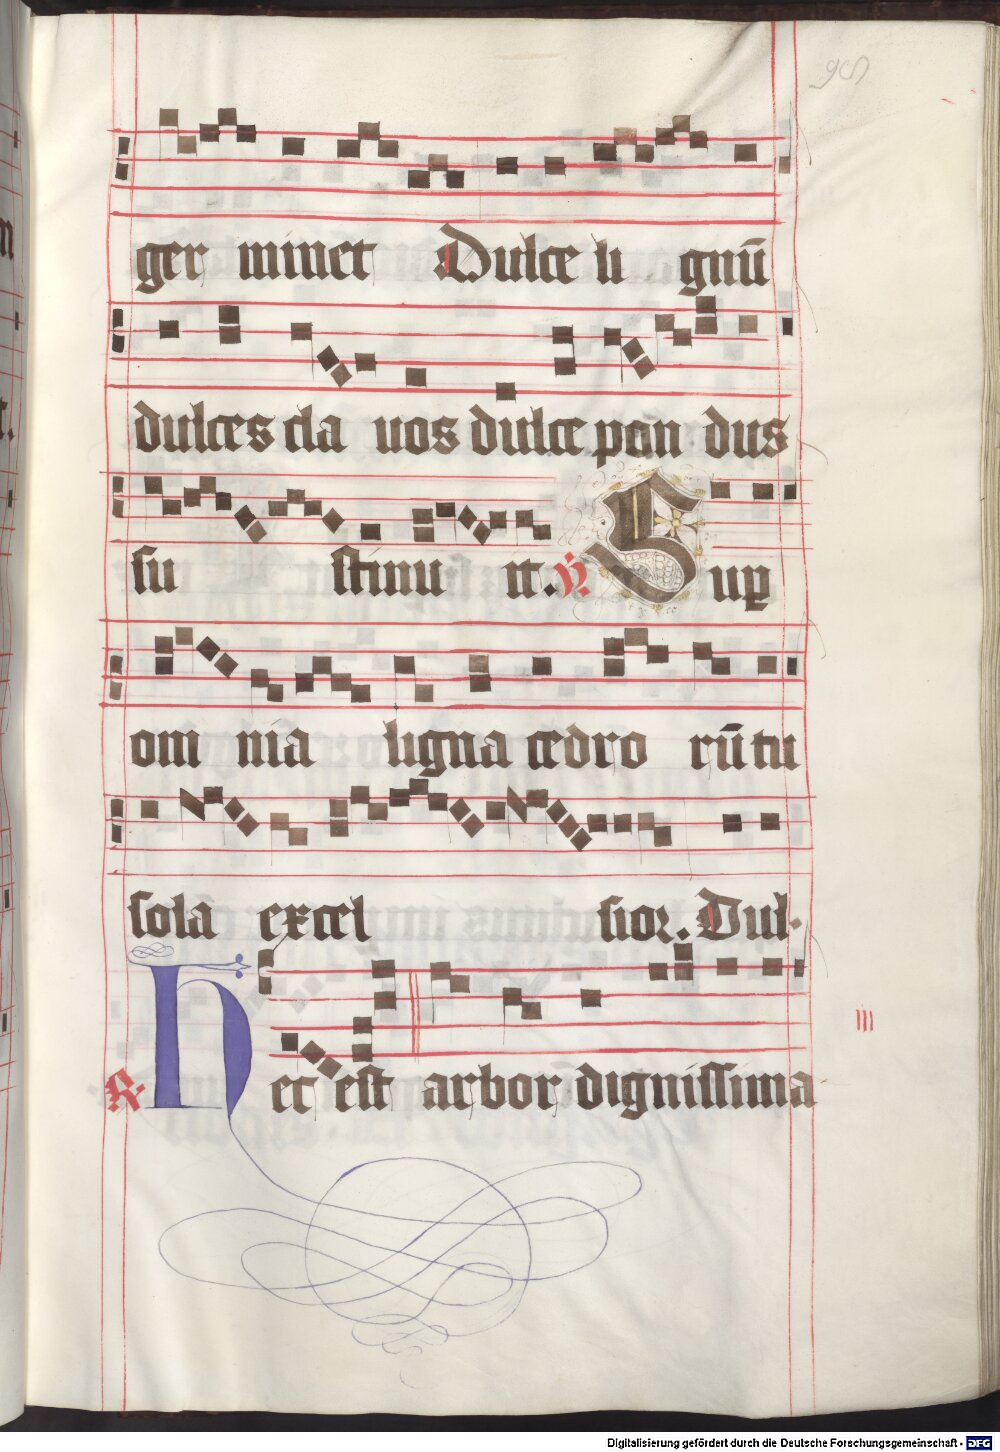 98
ger minet Dulce li gnū
dulces cla uos dulce pon dus
su stinu it. V. Sup
om nia ligna cedro rū tu
sola excel sior. Dul.
R. Hec est arbor dignissima
III
Digitalisierung gefördert durch die Deutsche Forschungsgemeinschaft - DFG